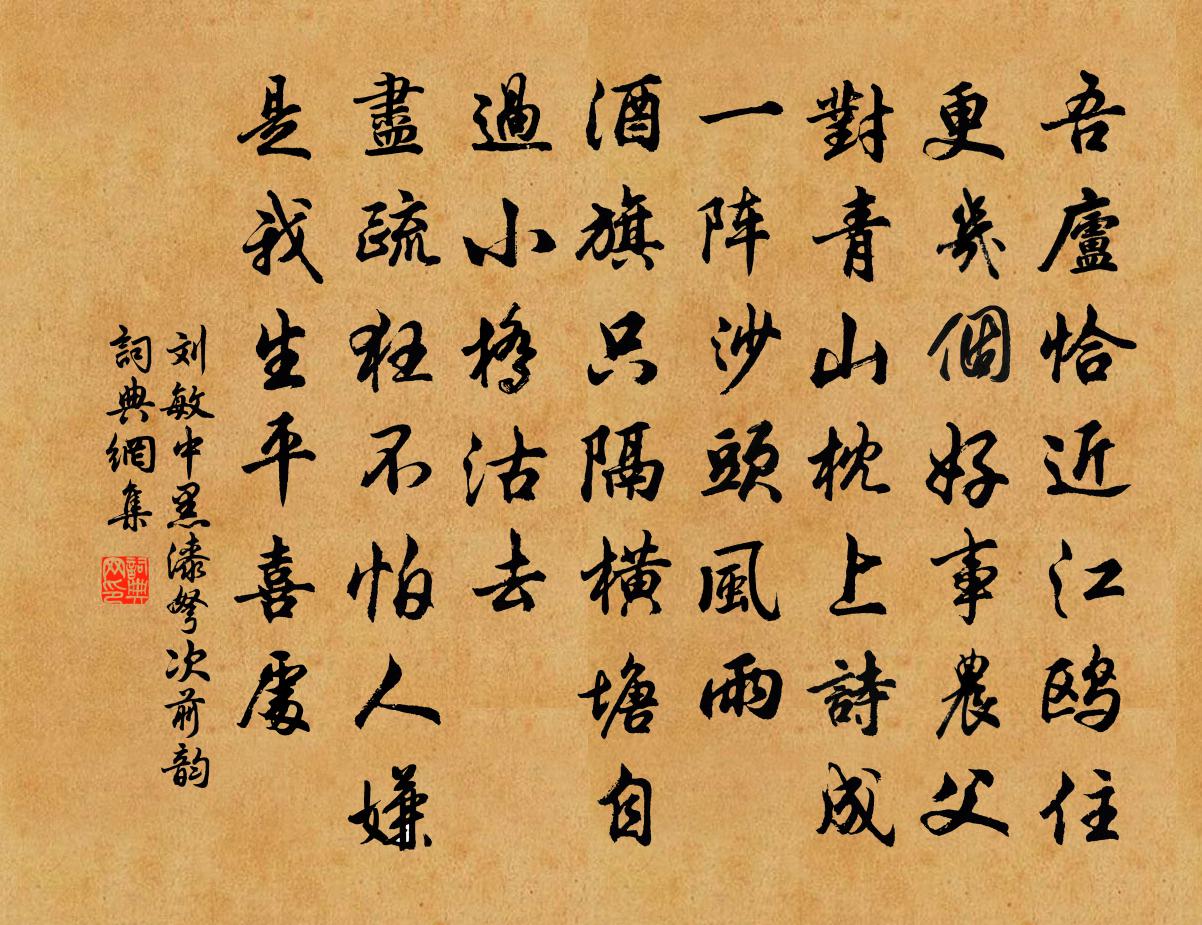 吾廬恰近江鸥住
更幾個好事農父
對青山枕上詩成
一阵沙頭風雨
酒旗只隔橫塘自
過小橋沽去
盡疏狂不怕人嫌
是我生平喜處
刘敏中黑漆弩次前韵
詞典網集
詞典
网印